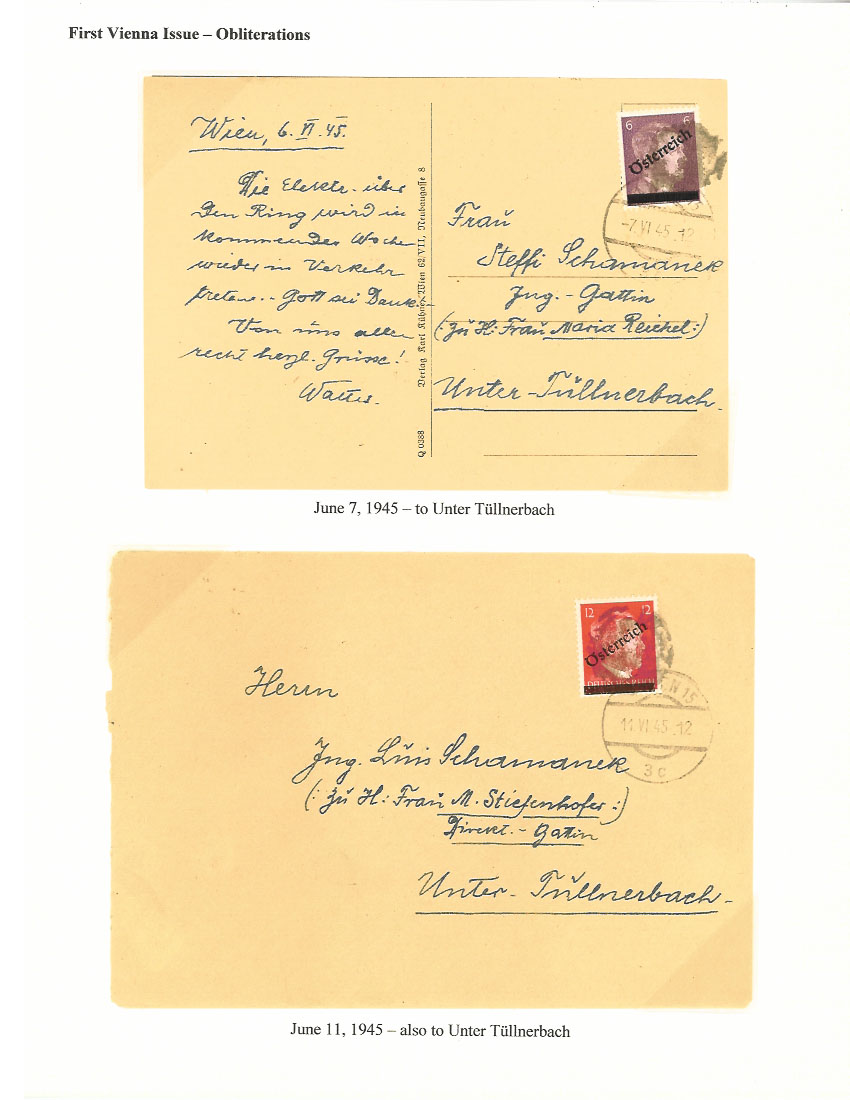 First Vienna Issue – Obliterations
Wien, 6. VI. 45.
Die Elektr. über
den Ring wird in
kommender Woche
wieder in Verkehr
treten. - Gott sei Dank. -
Von uns allen
recht herzl. Grüsse!
Walter.
Verlag Karl Kühn, Wien 62/VII, Neubaugasse 8
Q 0388
6 6
Österreich
-7.VI 45.12
Frau
Steffi Schamanek
Ing. - Gattin
(: zu H: Frau Maria Reichel :)
Unter-Tüllnerbach.
June 7, 1945 – to Unter Tüllnerbach
12 12
Österreich
DEUTSCHES REICH
11.VI 45.12
3c
Herrn
Ing. Luis Schamanek
(: zu H: Frau M. Stiefenhofer :)
Direkt. - Gattin
Unter-Tüllnerbach-
June 11, 1945 – also to Unter Tüllnerbach